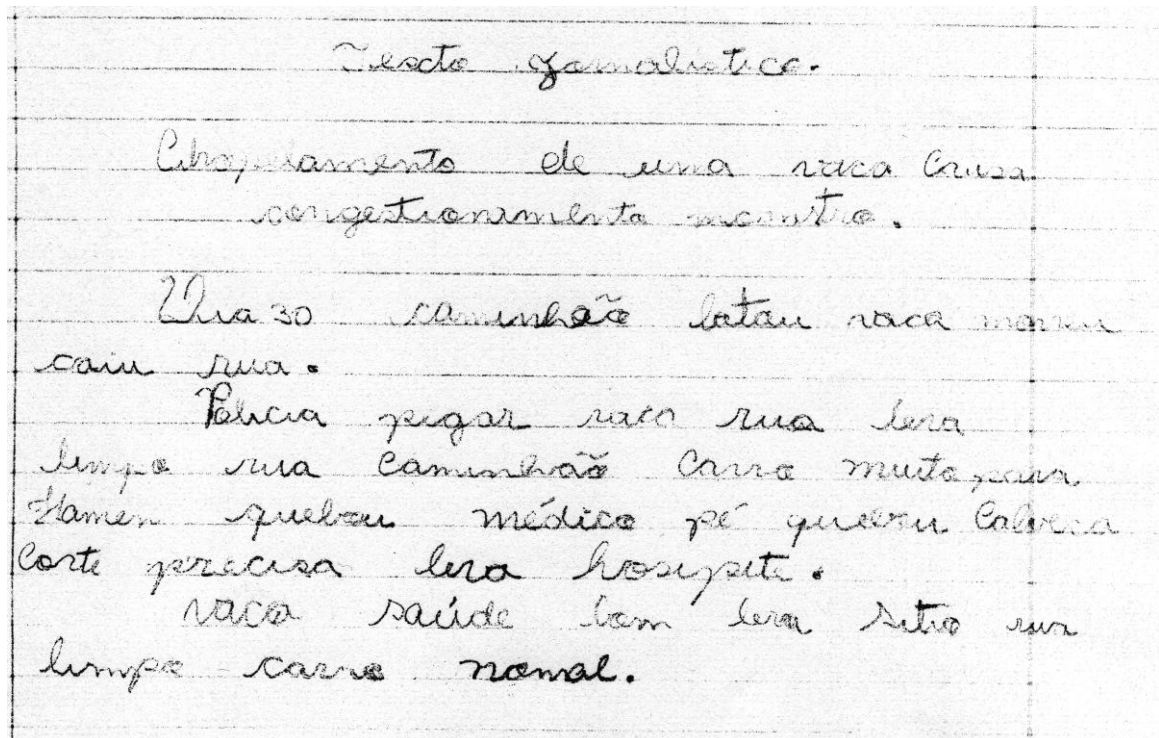 Texto Jornalistico.
Atropelamento de uma vaca Causa
congestionamento monstro.
Dia 30 caminhão bateu vaca morreu
caiu rua.
Policia pegar vaca rua leva
limpo rua caminhão carro muito para
Homen quebou médico pé quebou Cabeca
Corte precisa leva hosipite.
vaca saúde bom leva sitio rua
limpo carro nomal.